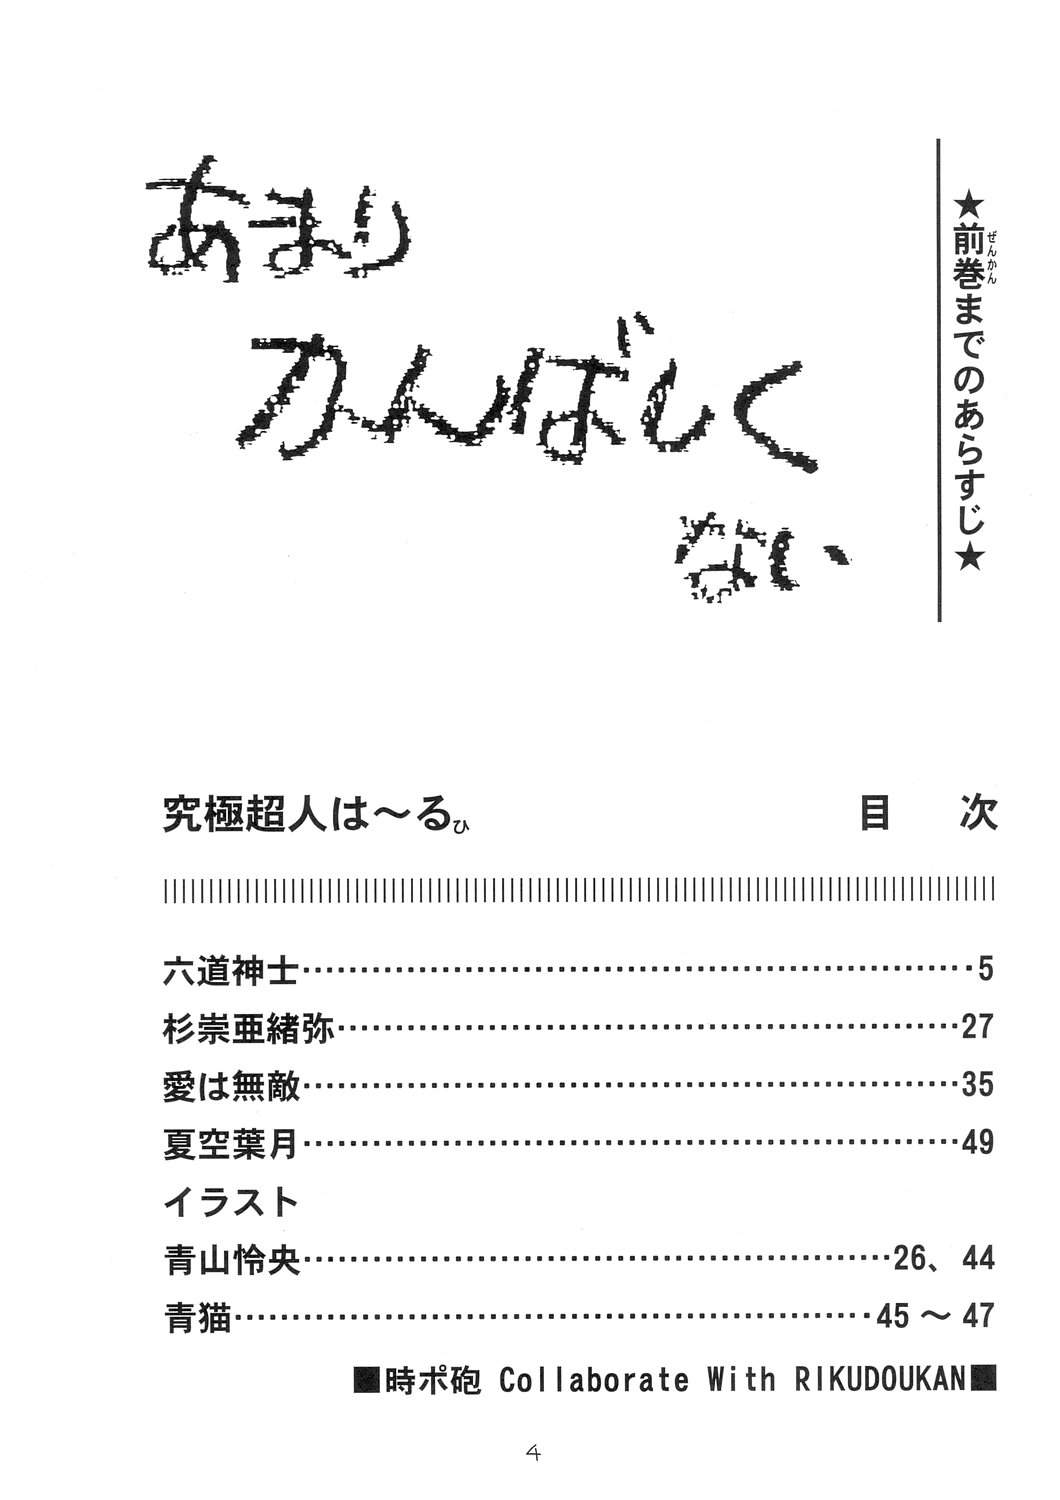 ★前巻までのあらすじ★
ぜんかん
あまり
かんばしく
ない
究極超人は～るひ
目 次
六道神士…………………………………………………5
杉崇亜緒弥………………………………………………27
愛は無敵…………………………………………………35
夏空葉月…………………………………………………49
イラスト
青山怜央……………………………………………26、44
青猫………………………………………………45～47
■時ポ砲 Collaborate With RIKUDOUKAN■
4